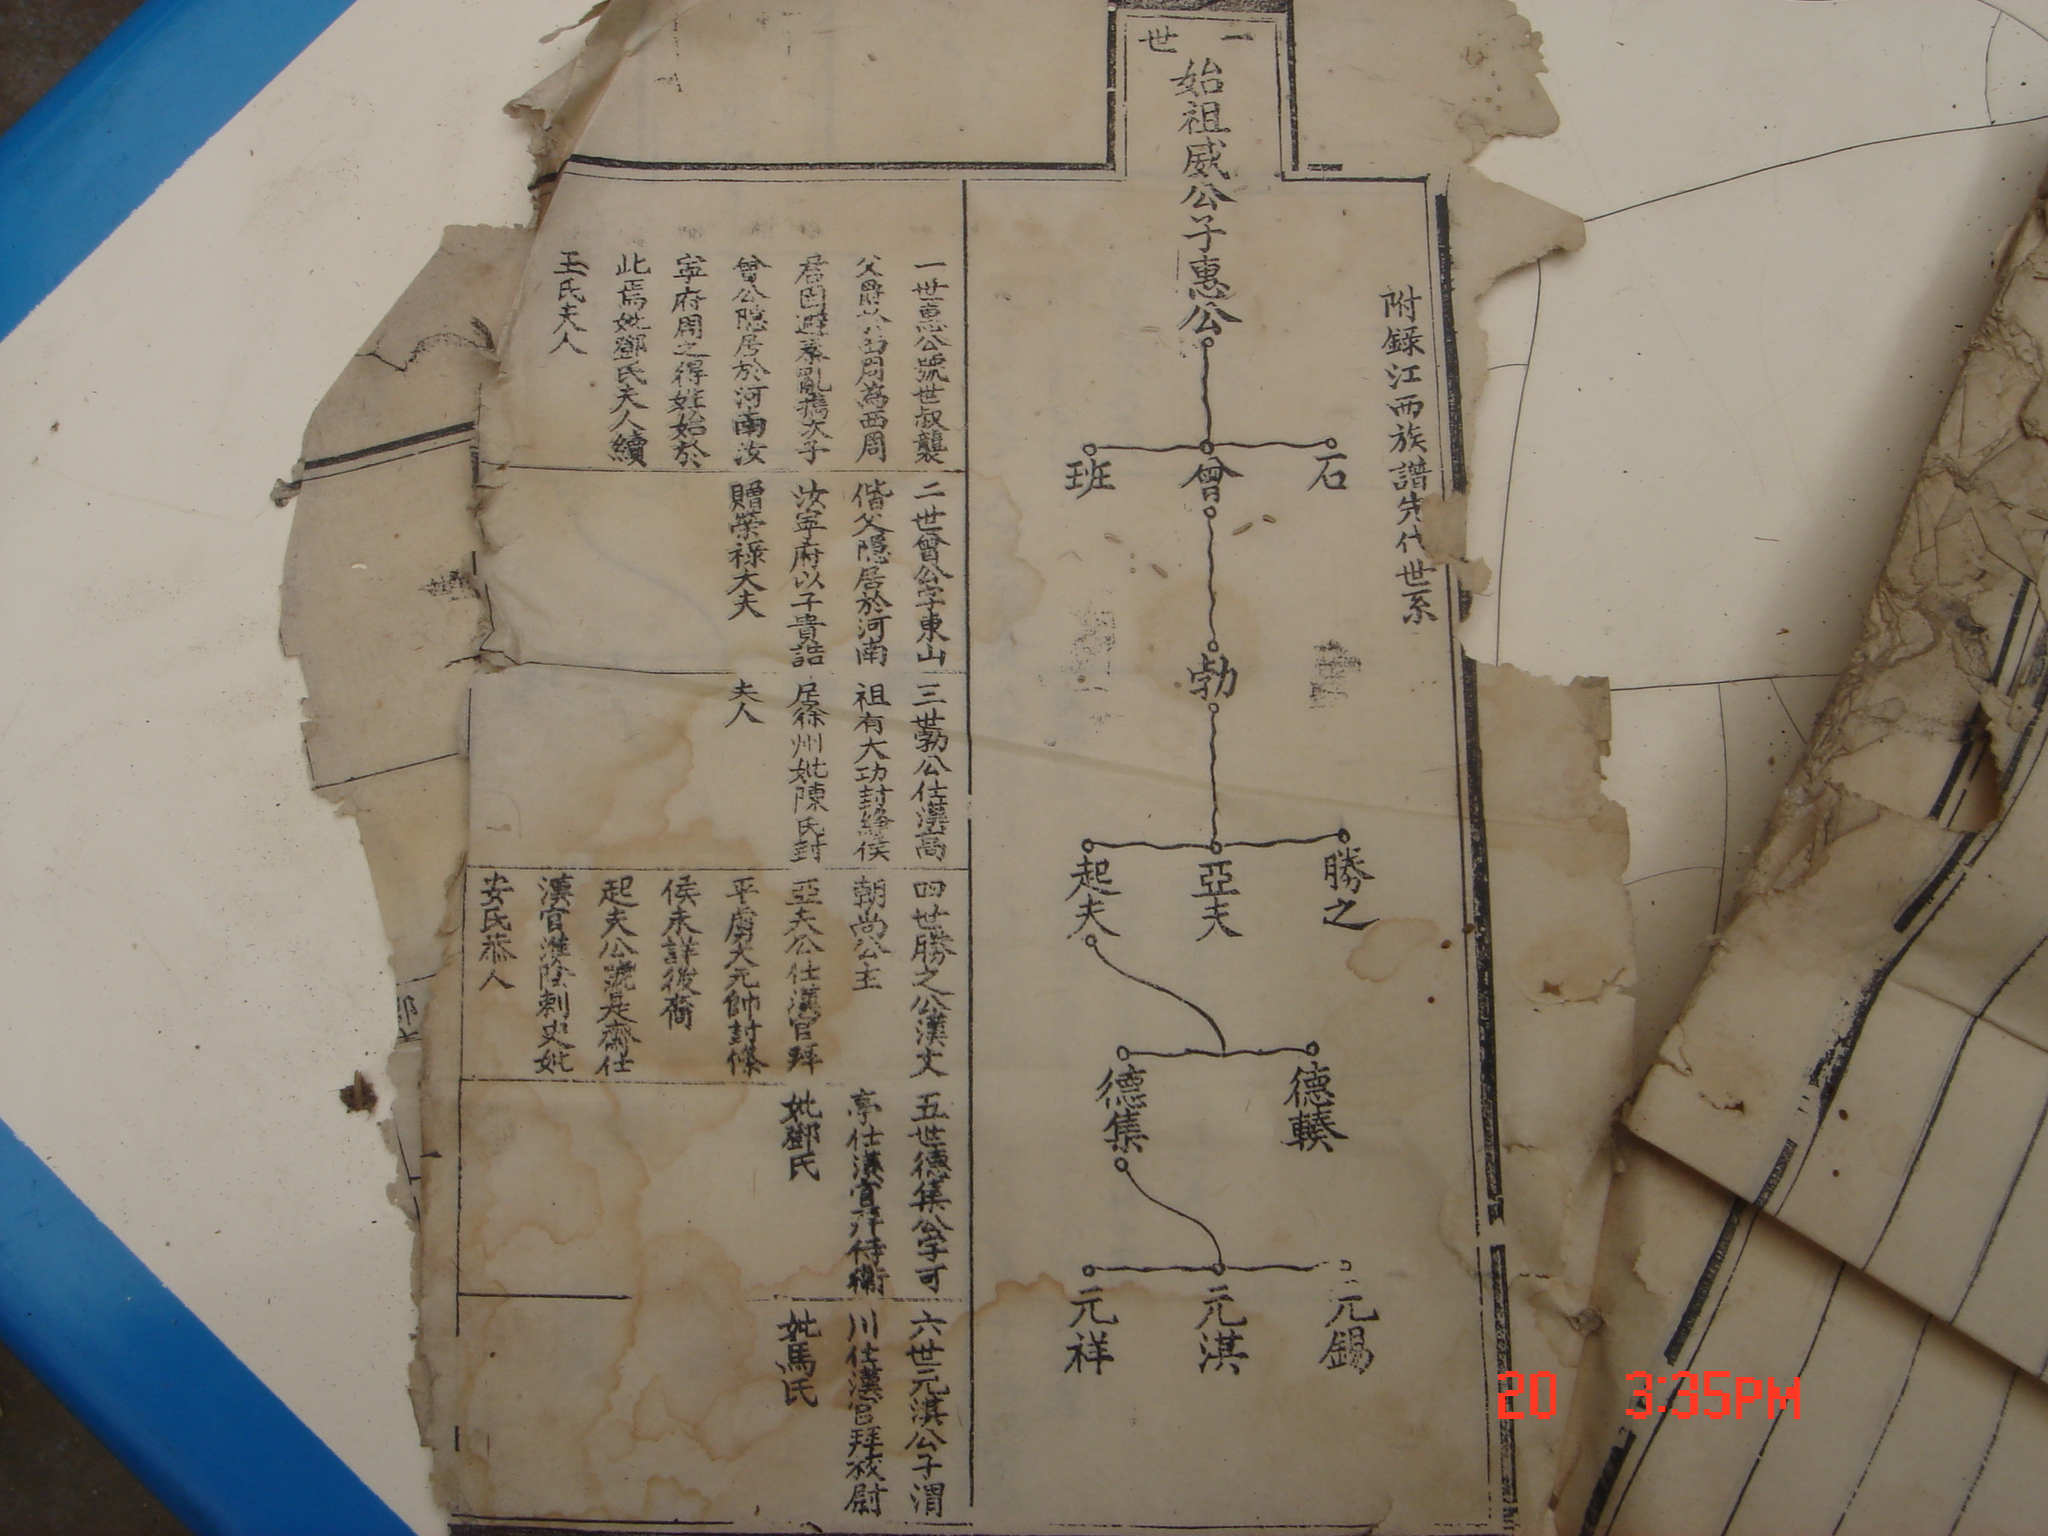 附錄江西族譜先代世系
一世
始祖威公子惠公
石
曾
班
勃
勝之
亞夫
起夫
德輳
德集
元錫
元淇
元祥
一世惠公號世叔襲
父爵於西周為西周
君因避秦亂携次子
曾公隐居於河南汝
寧府周之得姓始於
此焉妣鄧氏夫人續
王氏夫人
二世曾公字東山
偕父隐居於河南
汝寧府以子貴誥
贈榮祿大夫
三世勃公仕漢高
祖有大功封絳侯
居徐州妣陳氏封
夫人
四世勝之公漢文
朝尚公主
亞夫公仕漢官拜
平虜大元帥封條
侯未詳後裔
起夫公號是齋仕
漢官淮陰刺史妣
安氏恭人
五世德集公字可
亭仕漢官拜侍衛
妣鄧氏
六世元淇公子渭
川仕漢官拜校尉
妣馬氏
20 3:35PM